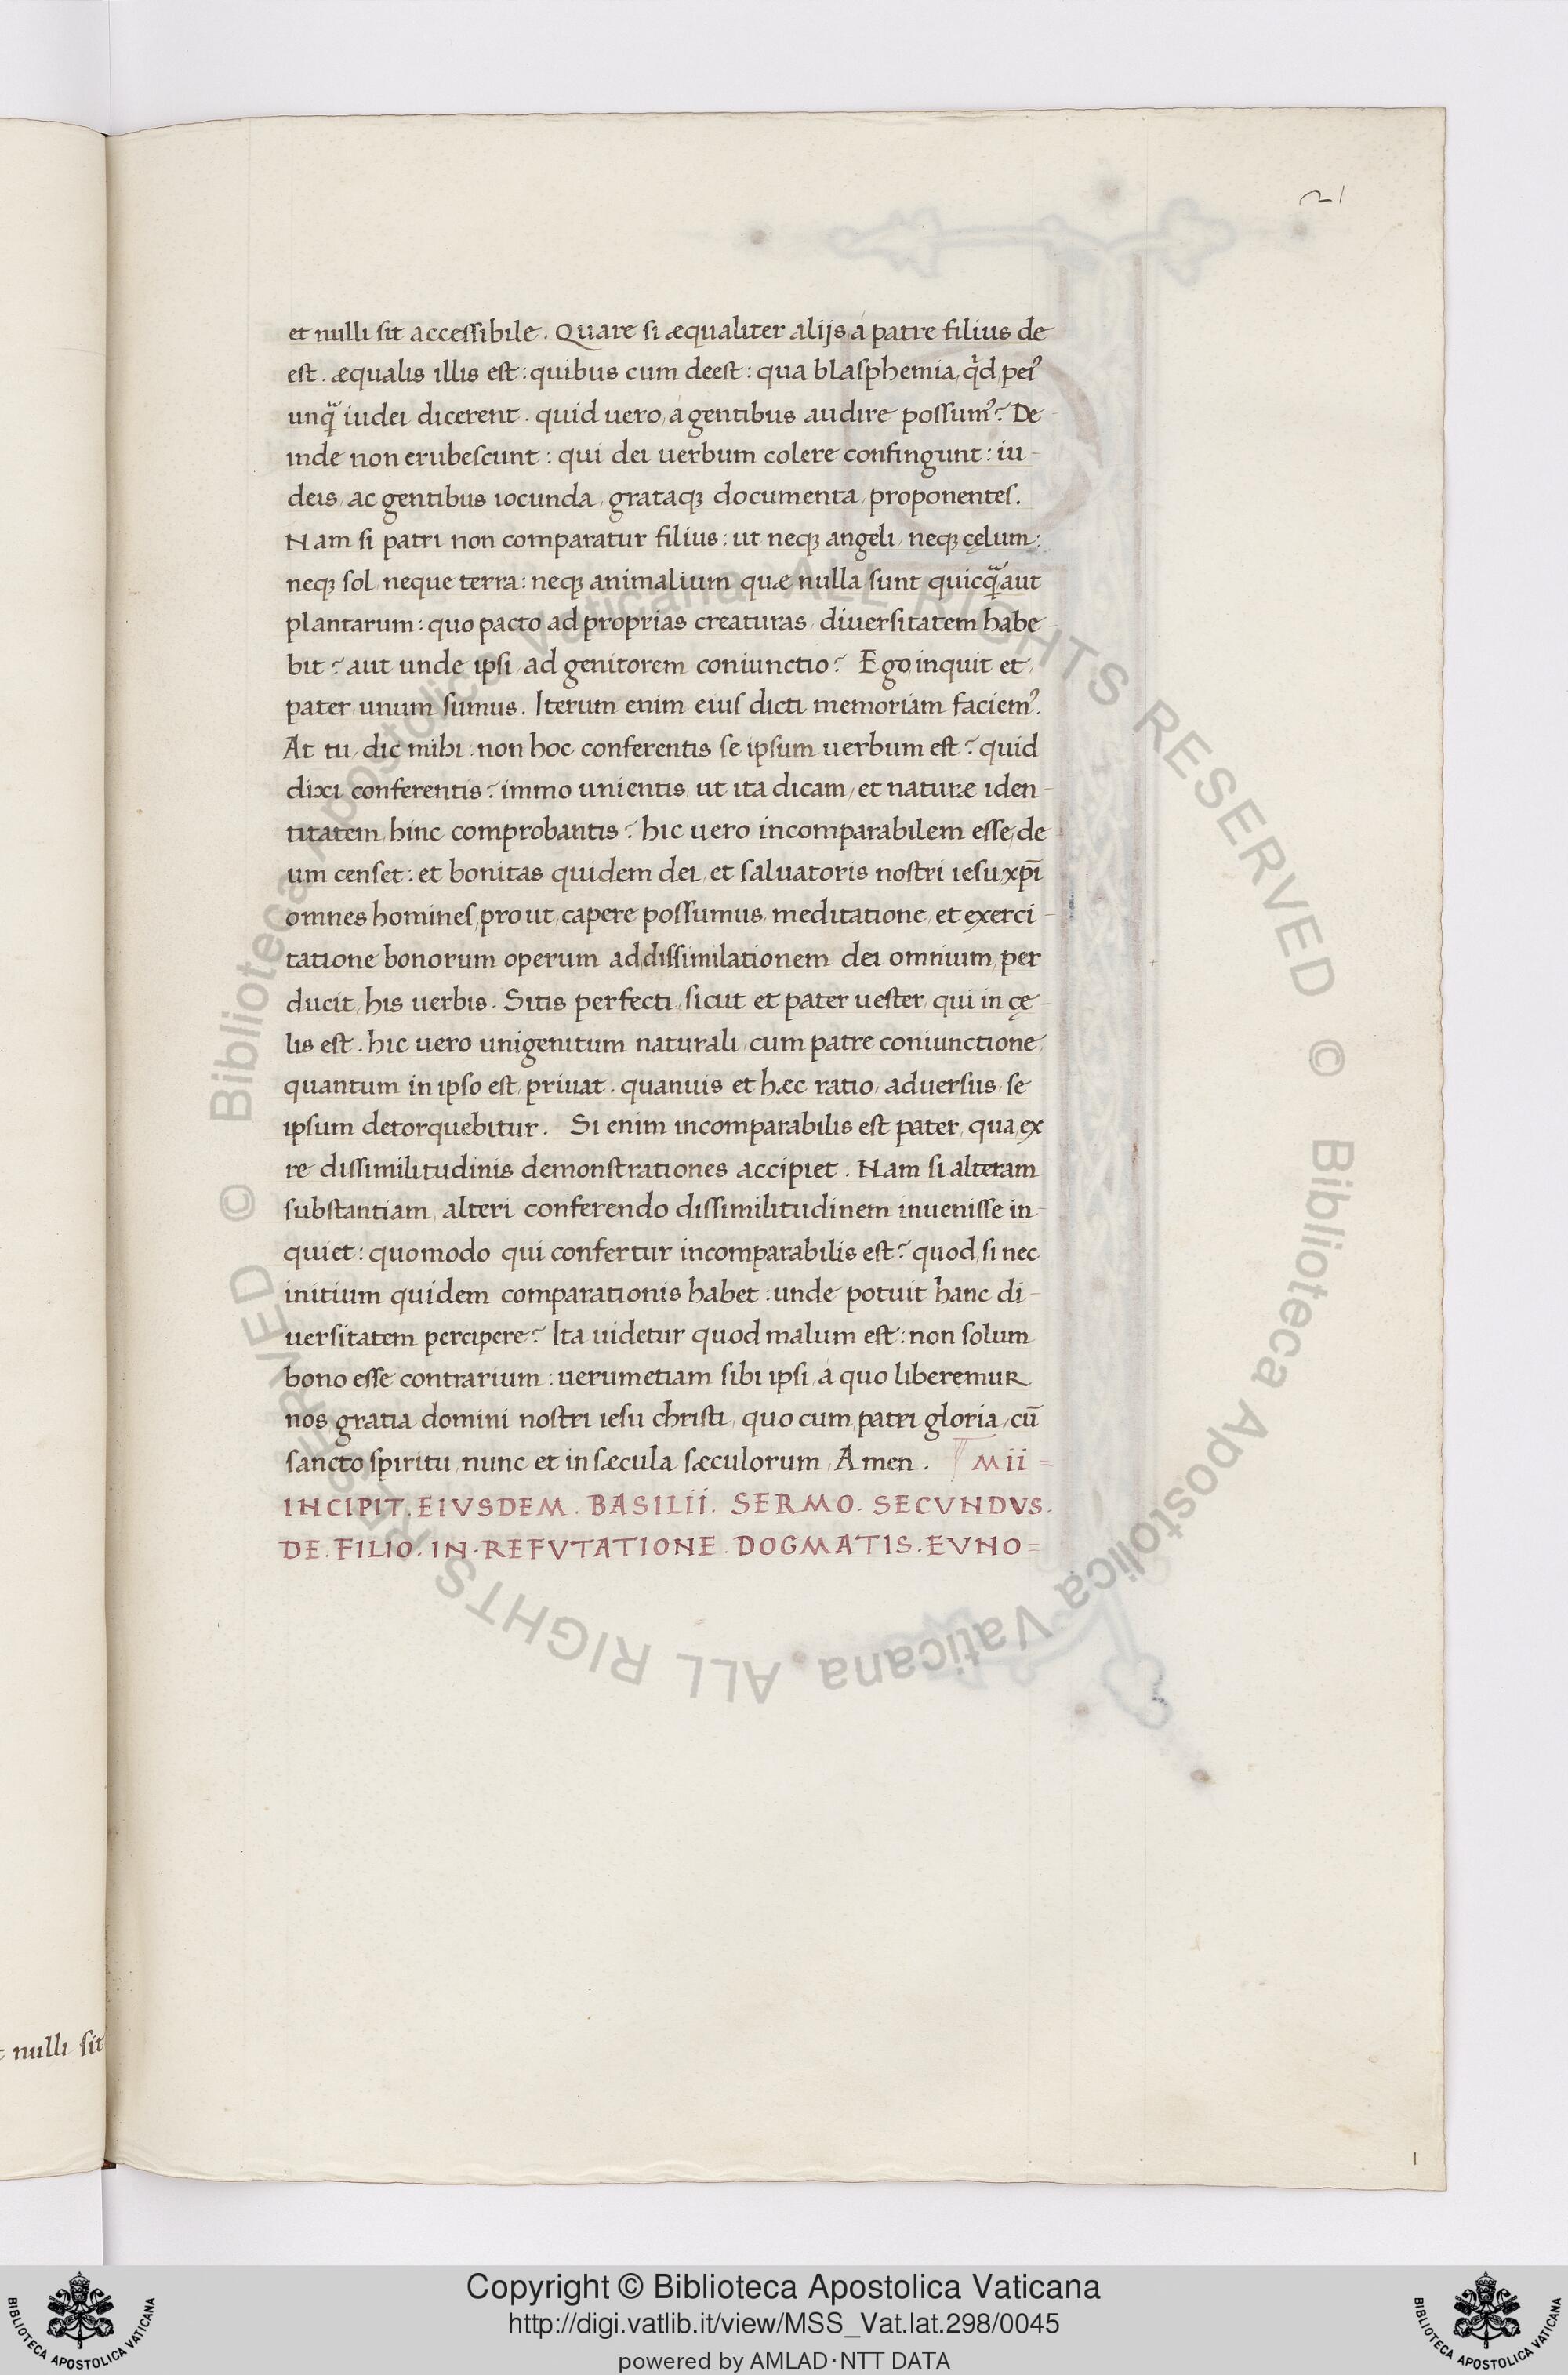 21
et nulli sit accessibile. Quare si æqualiter alijs, a patre filius de
est. æqualis illis est: quibus cum deest: qua blasphemia, qd̓, peiꝰ
unq̃ iudei dicerent. quid uero, a gentibus audire possumꝰ? De
inde non erubescunt: qui dei uerbum colere confingunt: iu-
deis, ac gentibus iocunda, grataqꝫ documenta, proponentes.
Nam si patri non comparatur filius: ut neqꝫ angeli, neqꝫ cęlum:
neqꝫ sol, neque terra: neqꝫ animalium quæ nulla sunt quicq̃ aut
plantarum: quo pacto ad proprias creaturas, diuersitatem habe-
bit? aut unde ipsi, ad genitorem coniunctio? Ego, inquit et,
pater, unum sumus. Iterum enim eius dicti memoriam faciemꝰ.
At tu, dic mihi: non hoc conferentis se ipsum uerbum est? quid
dixi conferentis? immo unientis, ut ita dicam, et naturæ iden-
titatem, hinc comprobantis? hic uero incomparabilem esse, de
um censet: et bonitas quidem dei, et saluatoris nostri iesu xp̄i
omnes homines, prout, capere possumus, meditatione, et exerci-
tatione bonorum operum ad dissimilationem dei omnium, per
ducit, his uerbis. Sitis perfecti, sicut et pater uester, qui in cę-
lis est. hic uero unigenitum naturali, cum patre coniunctione,
quantum in ipso est, priuat. quanuis et hæc ratio, aduersus, se
ipsum detorquebitur. Si enim incomparabilis est pater, qua, ex
re dissimilitudinis demonstrationes accipiet. Nam si alteram
substantiam, alteri conferendo dissimilitudinem inuenisse in-
quiet: quomodo qui confertur incomparabilis est? quod, si nec
initium quidem comparationis habet: unde potuit hanc di-
uersitatem percipere? Ita uidetur quod malum est: non solum
bono esse contrarium: uerumetiam sibi ipsi, a quo liberemur
nos gratia domini nostri iesu christi, quo cum patri gloria, cū
sancto spiritu, nunc et in sæcula sæculorum, Amen. MII=
INCIPIT. EIVSDEM. BASILII. SERMO. SECVNDVS.
DE. FILIO. IN. REFVTATIONE. DOGMATIS. EVNO=
nulli sit
1
© Biblioteca Apostolica Vaticana ALL RIGHTS RESERVED © Biblioteca Apostolica Vaticana ALL RIGHTS RESERVED
Copyright © Biblioteca Apostolica Vaticana
http://digi.vatlib.it/view/MSS_Vat.lat.298/0045
powered by AMLAD·NTT DATA
BIBLIOTECA APOSTOLICA VATICANA
BIBLIOTECA APOSTOLICA VATICANA